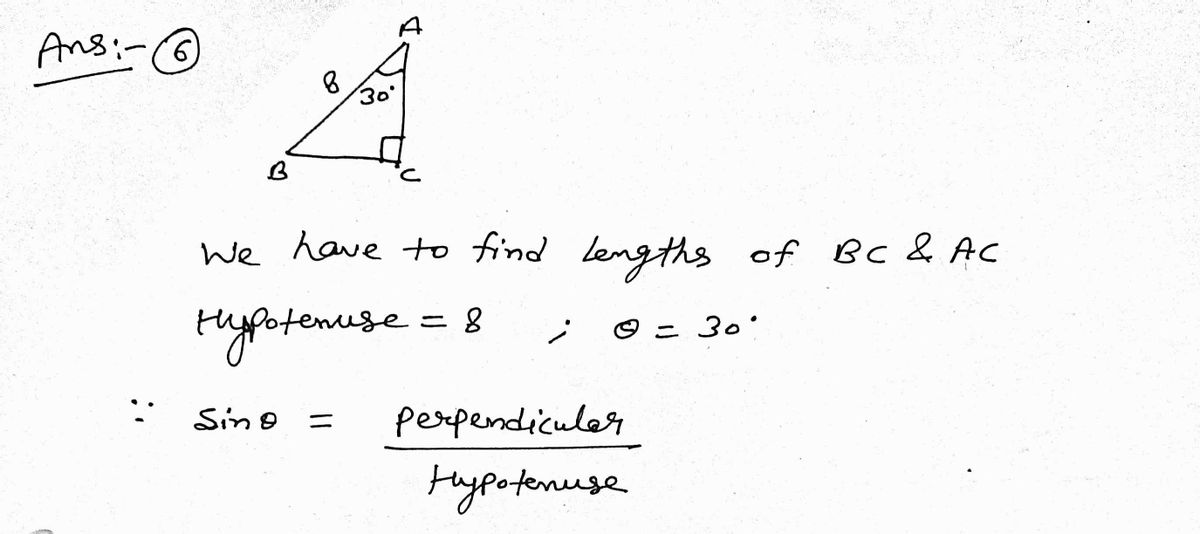 Ans:- 6
A
8
30°
B
C
We have to find lengths of BC & AC
Hypotenuse = 8 ; θ = 30°
∵ Sinθ = perpendicular
Hypotenuse